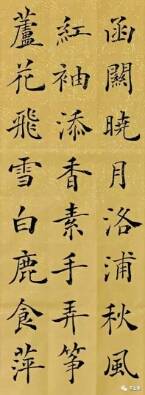 函關曉月洛浦秋風
紅袖添香素手弄箏
蘆花飛雪白鹿食萍